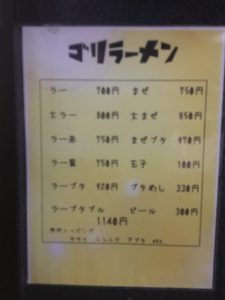 ゴリラーメン
ラー 700円 まぜ 750円
大ラー 800円 大まぜ 850円
ラー赤 750円 まぜブタ 970円
ラー黒 750円 玉子 100円
ラーブタ 920円 ブタめし 330円
ラーブタブル ビール 300円
1140円
無料トッピング
ヤサイ ニンニク アブラ etc.